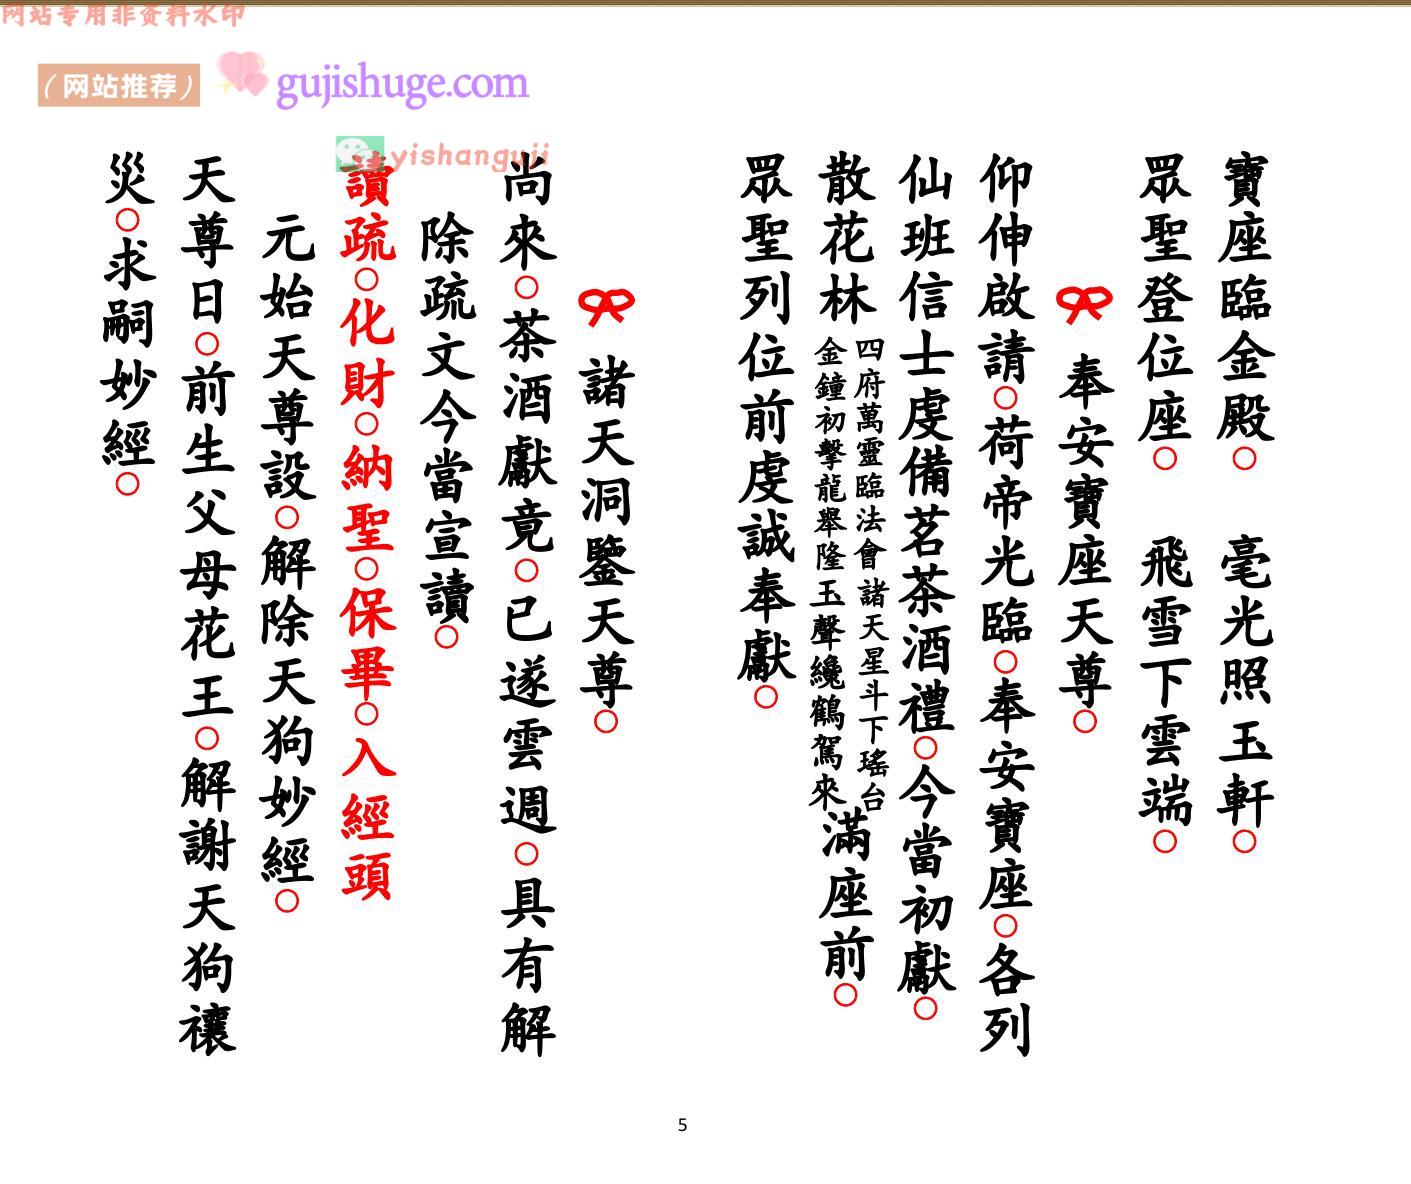 网站专用非资料水印
（网站推荐）
gujishuge.com
yishanguji
寶座臨金殿○ 毫光照玉軒○
眾聖登位座○ 飛雪下雲端○
奉安寶座天尊○
仰伸啟請○荷帝光臨○奉安寶座○各列
仙班信士虔備茗茶酒禮○今當初獻○
散花林 四府萬靈臨法會諸天星斗下瑤台 金鐘初擊龍舉隆玉聲纔鶴駕來 滿座前○
眾聖列位前虔誠奉獻○
諸天洞鑒天尊○
尚來○茶酒獻竟○已遂雲週○具有解
除疏文今當宣讀○
讀疏○化財○納聖○保畢○入經頭
元始天尊設○解除天狗妙經○
天尊日○前生父母花王○解謝天狗禳
災○求嗣妙經○
5